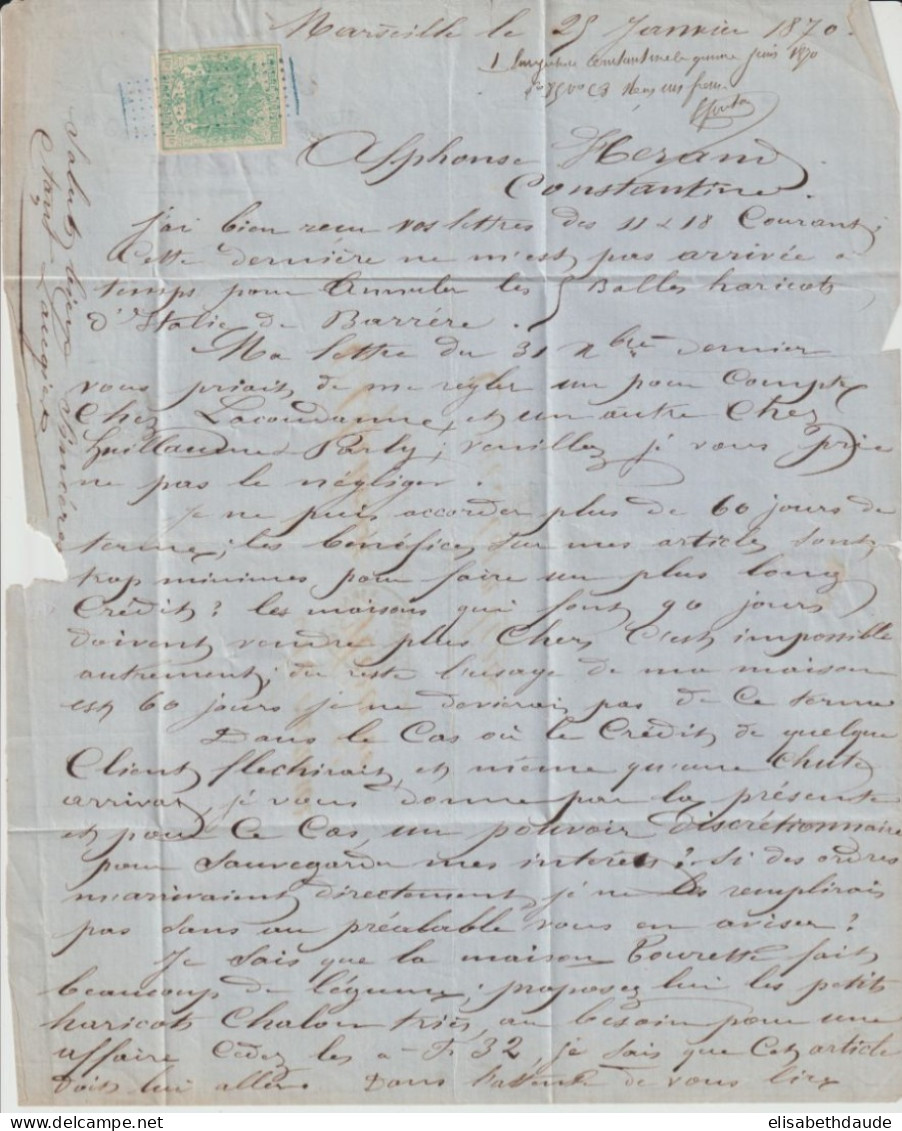 Marseille le 25 Janvier 1870.
Constantine juin 1870
Alphonse Herand
Constantine.
J'ai bien reçu vos lettres des 11 & 18 Courant;
Cette dernière ne m'est pas arrivée a
temps pour Annuler les 5 Balles haricots
d'Italie de Barrére.
Ma lettre du 31 Xbre dernier
vous priait de me règler un pour Compte
Chez Lacoudanne, et un autre Chez
Guillaume Party; veuillez je vous prie
ne pas le négliger.
Je ne puis accorder plus de 60 jours de
terme; les bénéfices sur mes articles sont
trop minimes pour faire un plus long
Crédit; les maisons qui font 90 jours
doivent vendre plus Cher, C'est impossible
autrement; du reste l'usage de ma maison
est 60 jours je ne dévierai pas de Ce terme
Dans le Cas où le Crédit de quelque
Client flechirait, et même qu'une Chute
arrivat, je vous donne par la présente
et pour Ce Cas, un pouvoir Discrétionnaire
pour Sauvegarder mes interets; Si des ordres
m'arrivaient directement, je ne les remplirais
pas sans au préalable vous en aviser;
Je Sais que la maison Tourette fait
beaucoup de légumes; proposez lui les petits
haricots Chalon triés, au besoin pour une
affaire Cédez les a F 32, je sais que Cet article
doit lui aller. Dans l'attente de vous lire
Salut bien sincère
Laugier
elisabethdaude